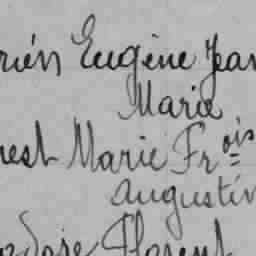 rién Eugène Jean
Marie
nest Marie Frois
Augustin
Florent